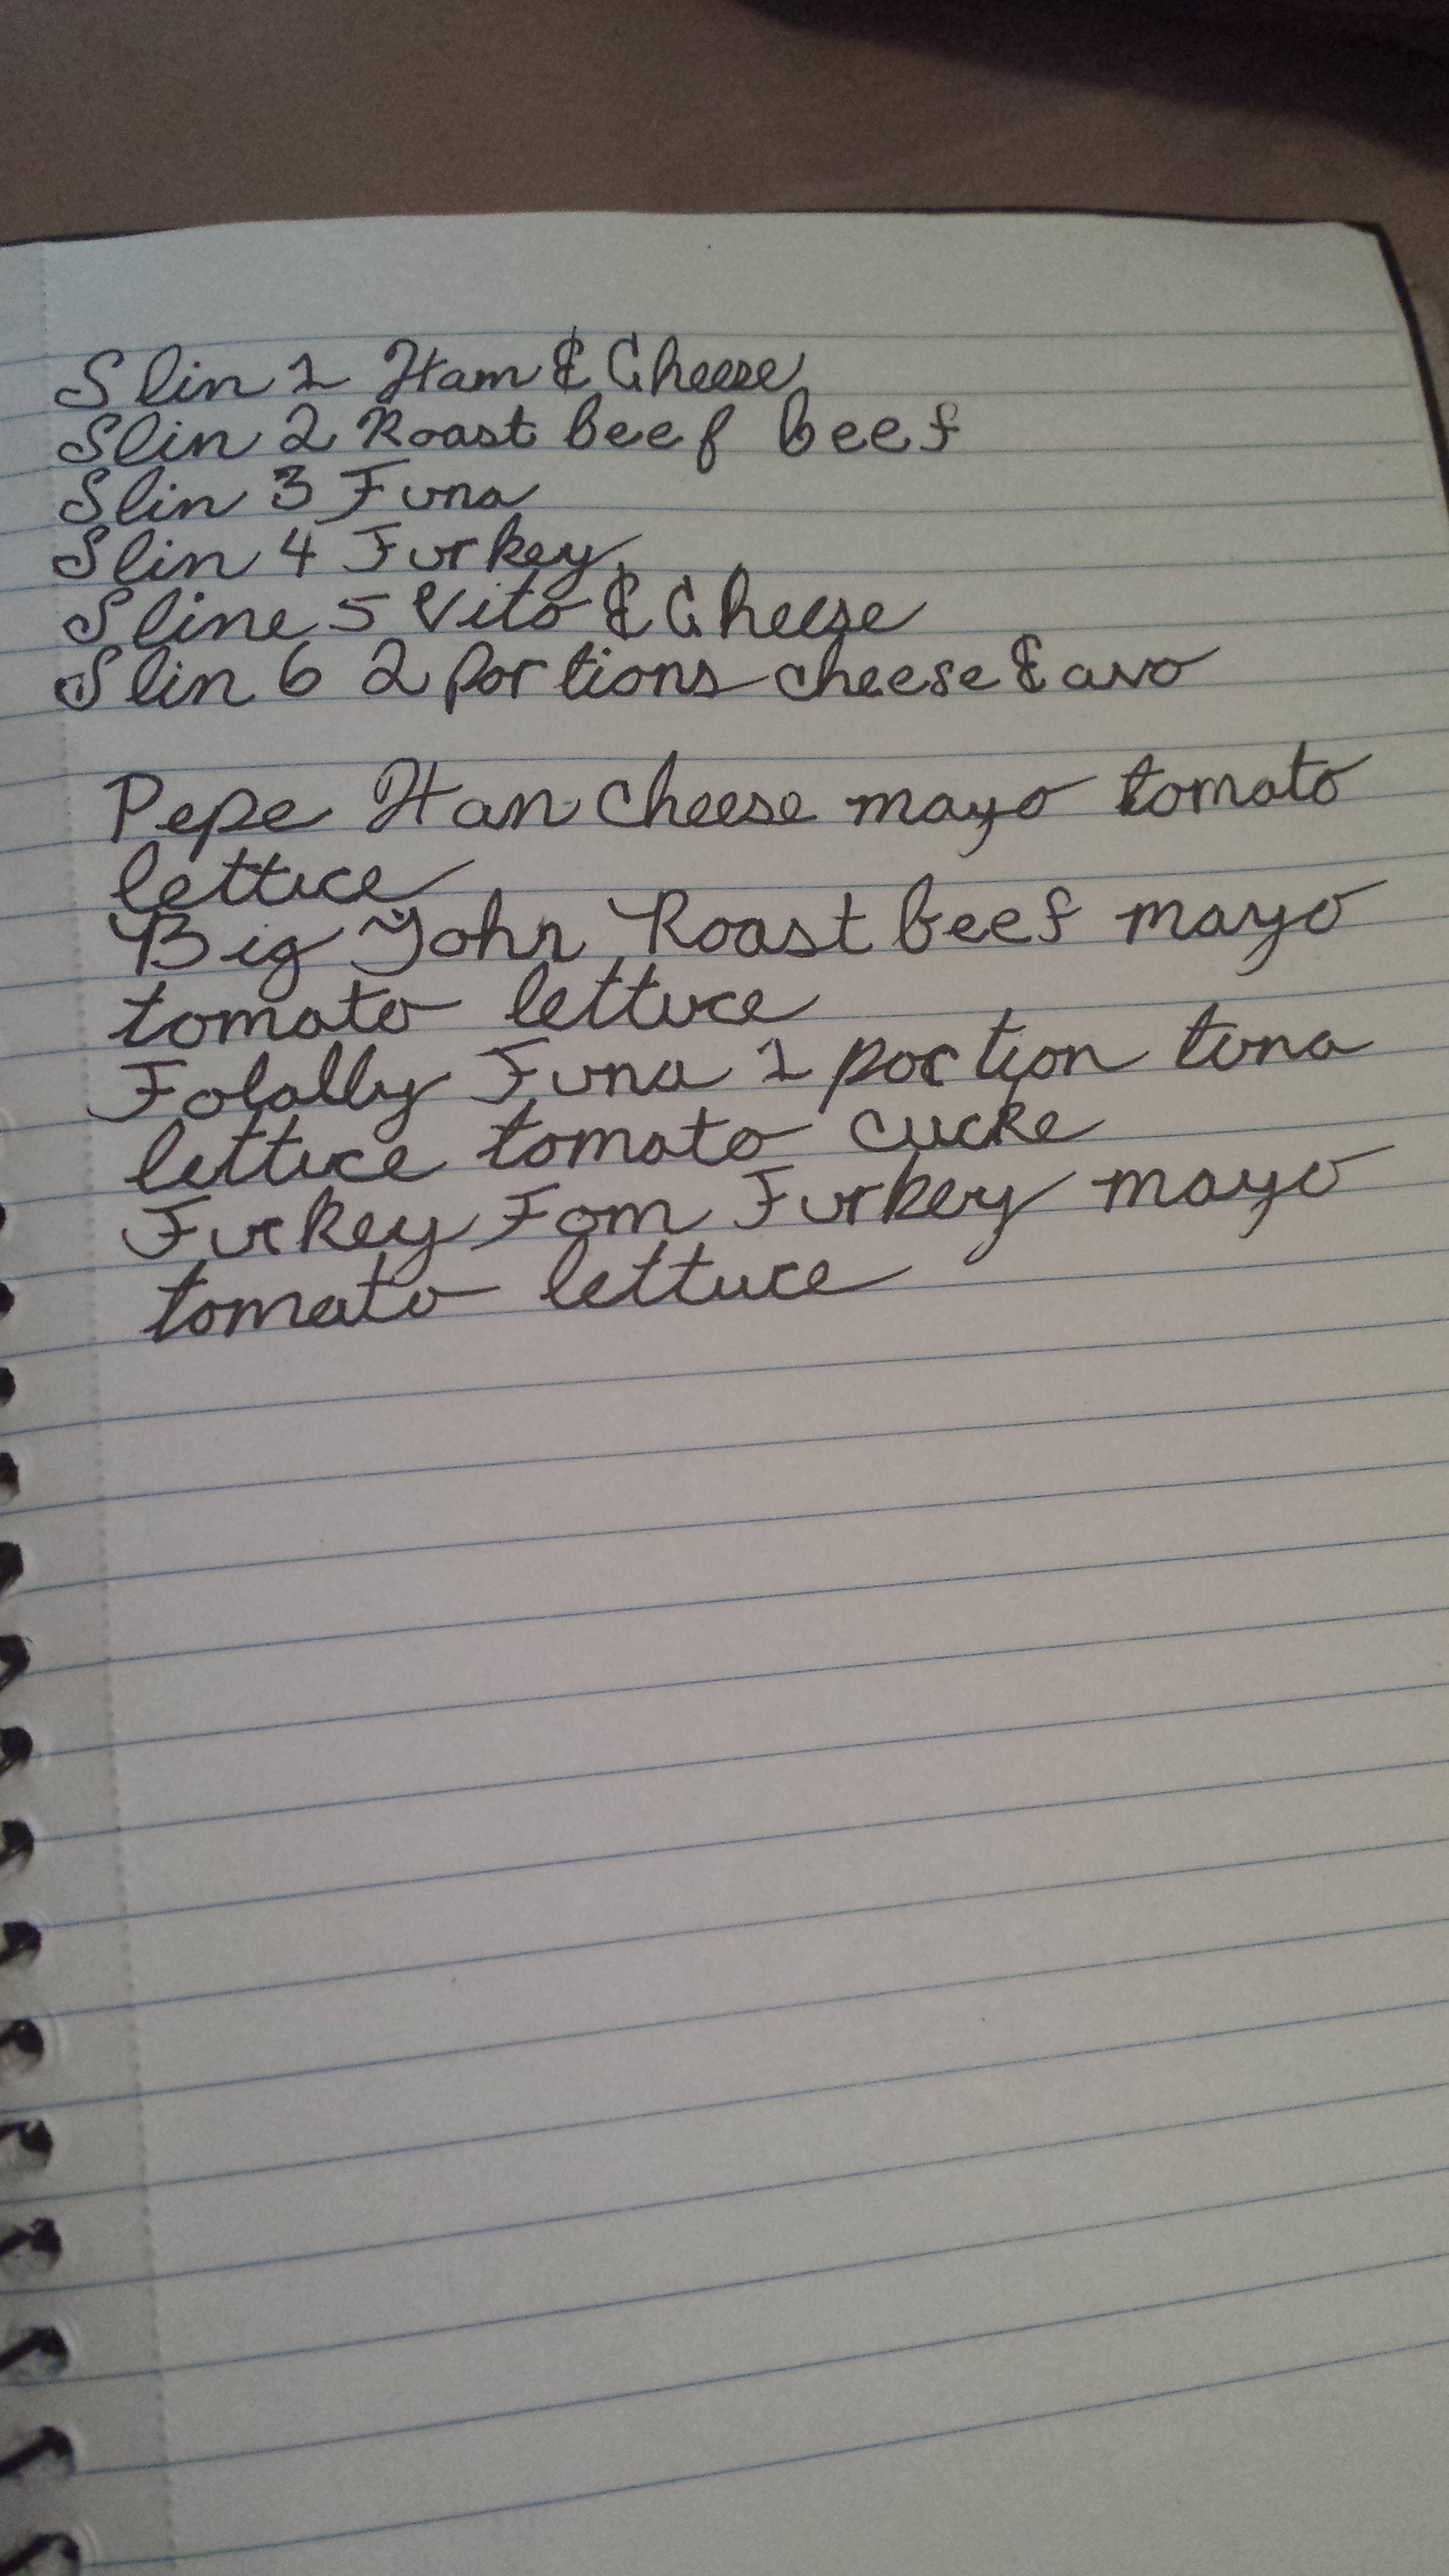 Slin 1 Ham & Cheese
Slin 2 Roast beef beef
Slin 3 Tuna
Slin 4 Turkey
Sline 5 Vito & Cheese
Slin 6 2 portions cheese & avo
Pepe Han Cheese mayo tomato
lettuce
Big John Roast beef mayo
tomato lettuce
Totally Tuna 1 portion tuna
lettuce tomato cucke
Turkey Tom Turkey mayo
tomato lettuce